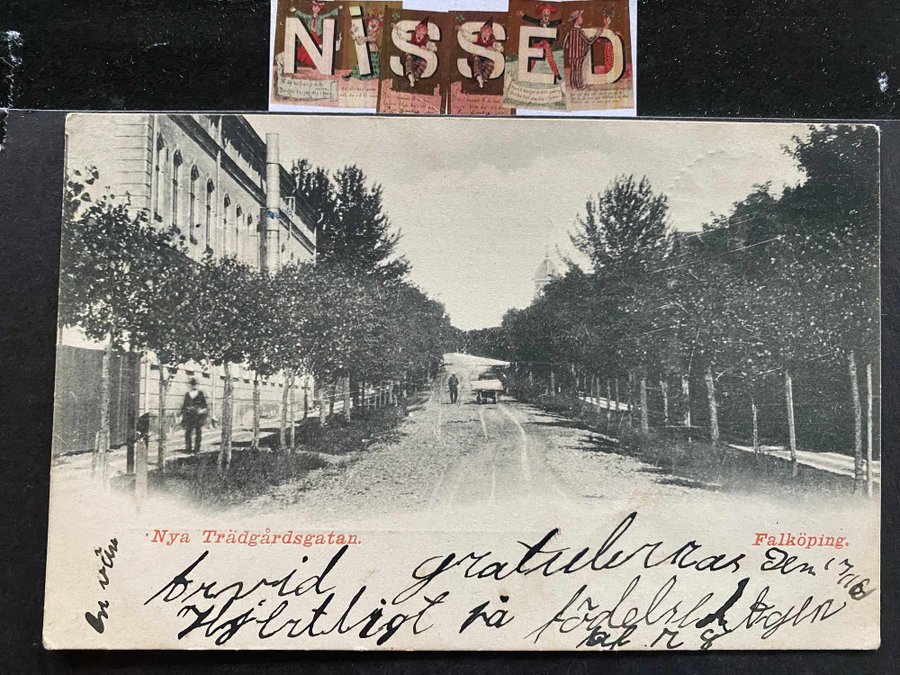 NiSSED
Nya Trädgårdsgatan. Falköping.
Arvid gratuleras Den
Hjertligt på födelsedagen
af
En vän